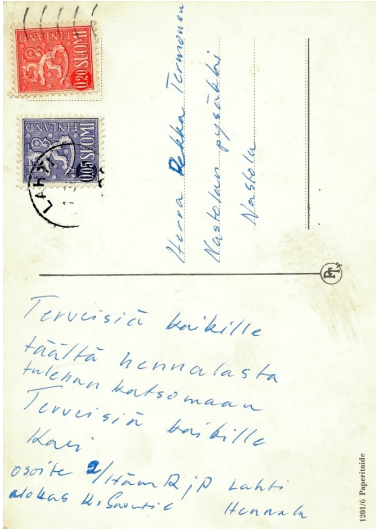 0,20 SUOMI
FINLAND
0,05 SUOMI
FINLAND
LAHTI
Herra Pekka Termonen
Nastolan pysäkki
Nastola
PT
Terveisiä kaikille
täältä hennalasta
tulehan katsomaan
Terveisiä kaikille
Kari
osoite 2/HämRjP Lahti
alokas K. Hennala
1201/6 Paperitaide